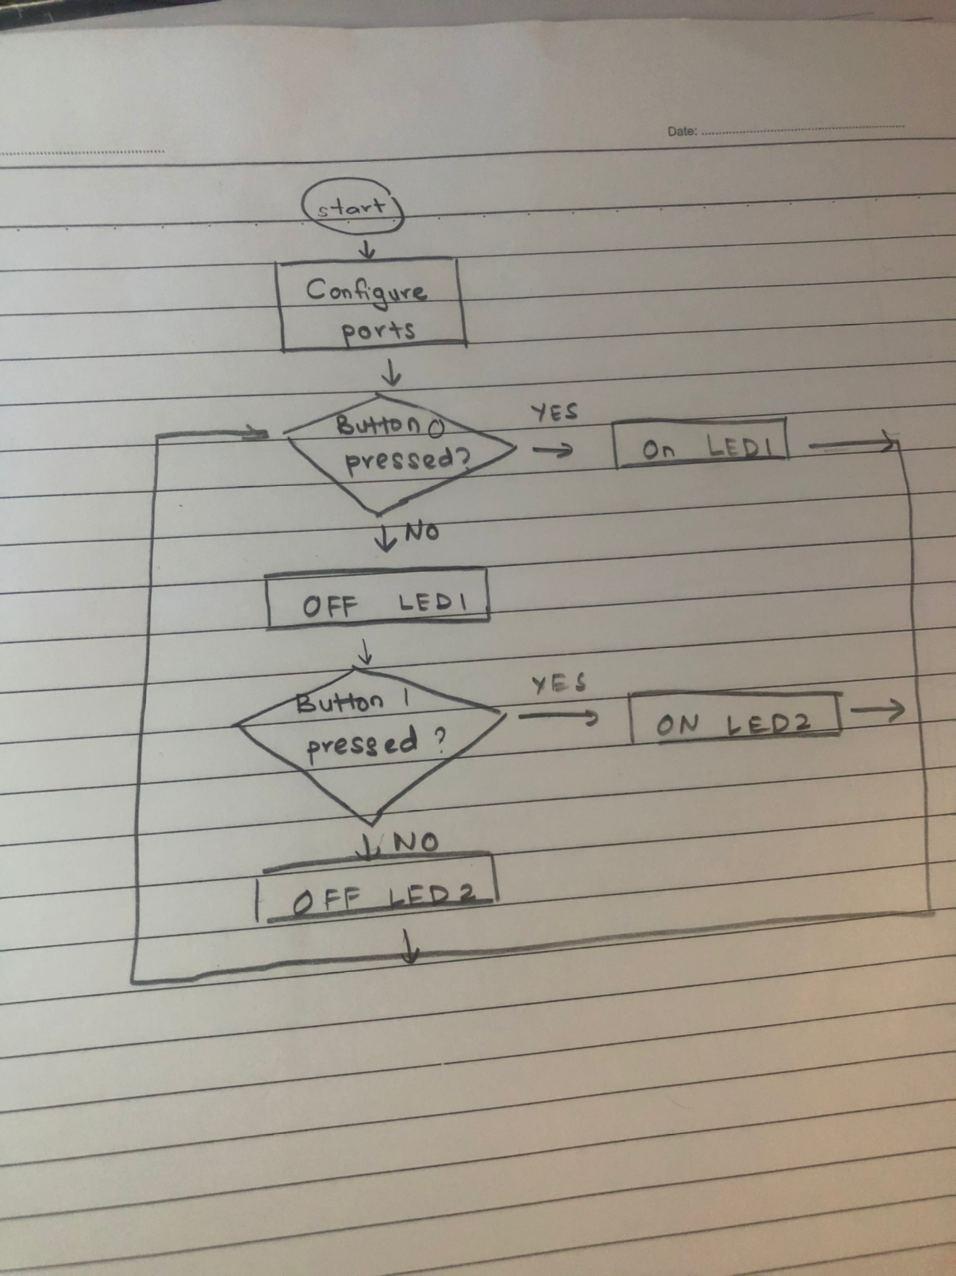 Date:
start
Configure
ports
Button 0
pressed?
YES
On LED1
NO
OFF LED1
Button 1
pressed ?
YES
ON LED2
NO
OFF LED2